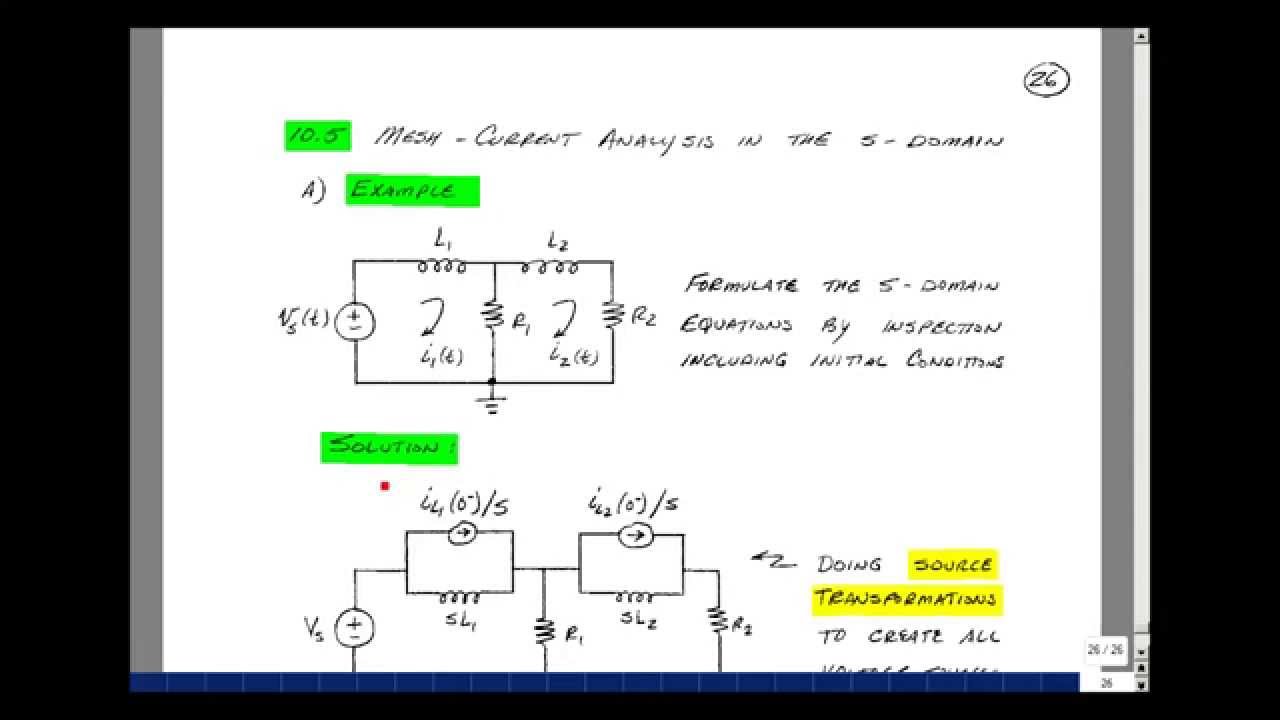 26
10.5 MESH - CURRENT ANALYSIS IN THE S - DOMAIN
A) EXAMPLE
L1 L2
Vs(t) + − R1 R2
i1(t) i2(t)
FORMULATE THE S - DOMAIN
EQUATIONS BY INSPECTION
INCLUDING INITIAL CONDITIONS
SOLUTION:
iL1(0-)/S iL2(0-)/S
DOING SOURCE
TRANSFORMATIONS
SL1 SL2
Vs + − R1 R2
TO CREATE ALL
26 / 26
26